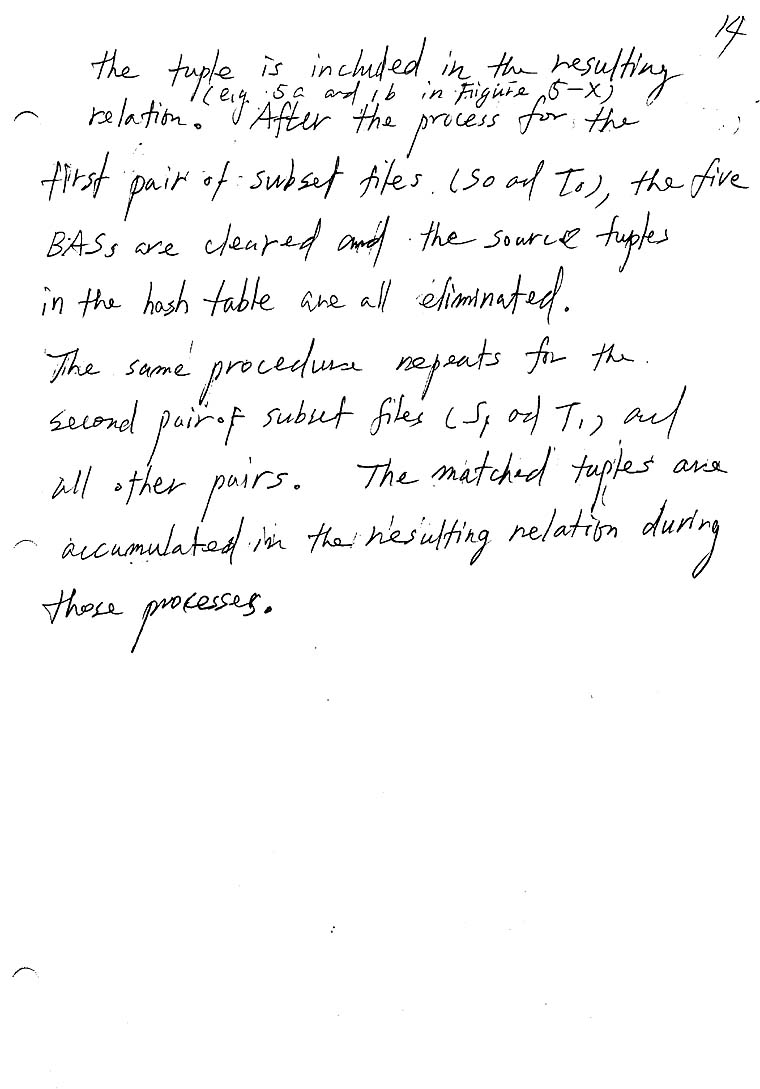 14
the tuple is included in the resulting
(e.g. 5a and 1b in Figure 5-X)
relation. After the process for the
first pair of subset files (S0 ad T0), the five
BASs are cleared and the source tuples
in the hash table are all eliminated.
The same procedure repeats for the
second pair of subset files (S1 ad T1) and
all other pairs. The matched tuples are
accumulated in the resulting relation during
those processes.